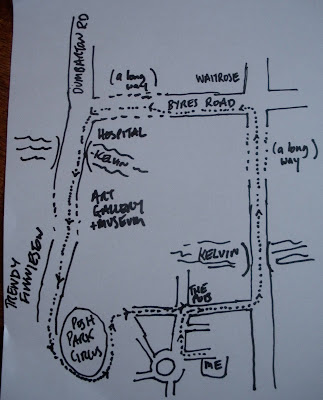 DUMBARTON RD
(a long
way)
WAITROSE
BYRES ROAD
HOSPITAL
KELVIN
(a long
way)
ART
GALLERY
+ MUSEUM
TRENDY
KELVIN
THE
PUB
POSH
PARK
CIRCUS
ME